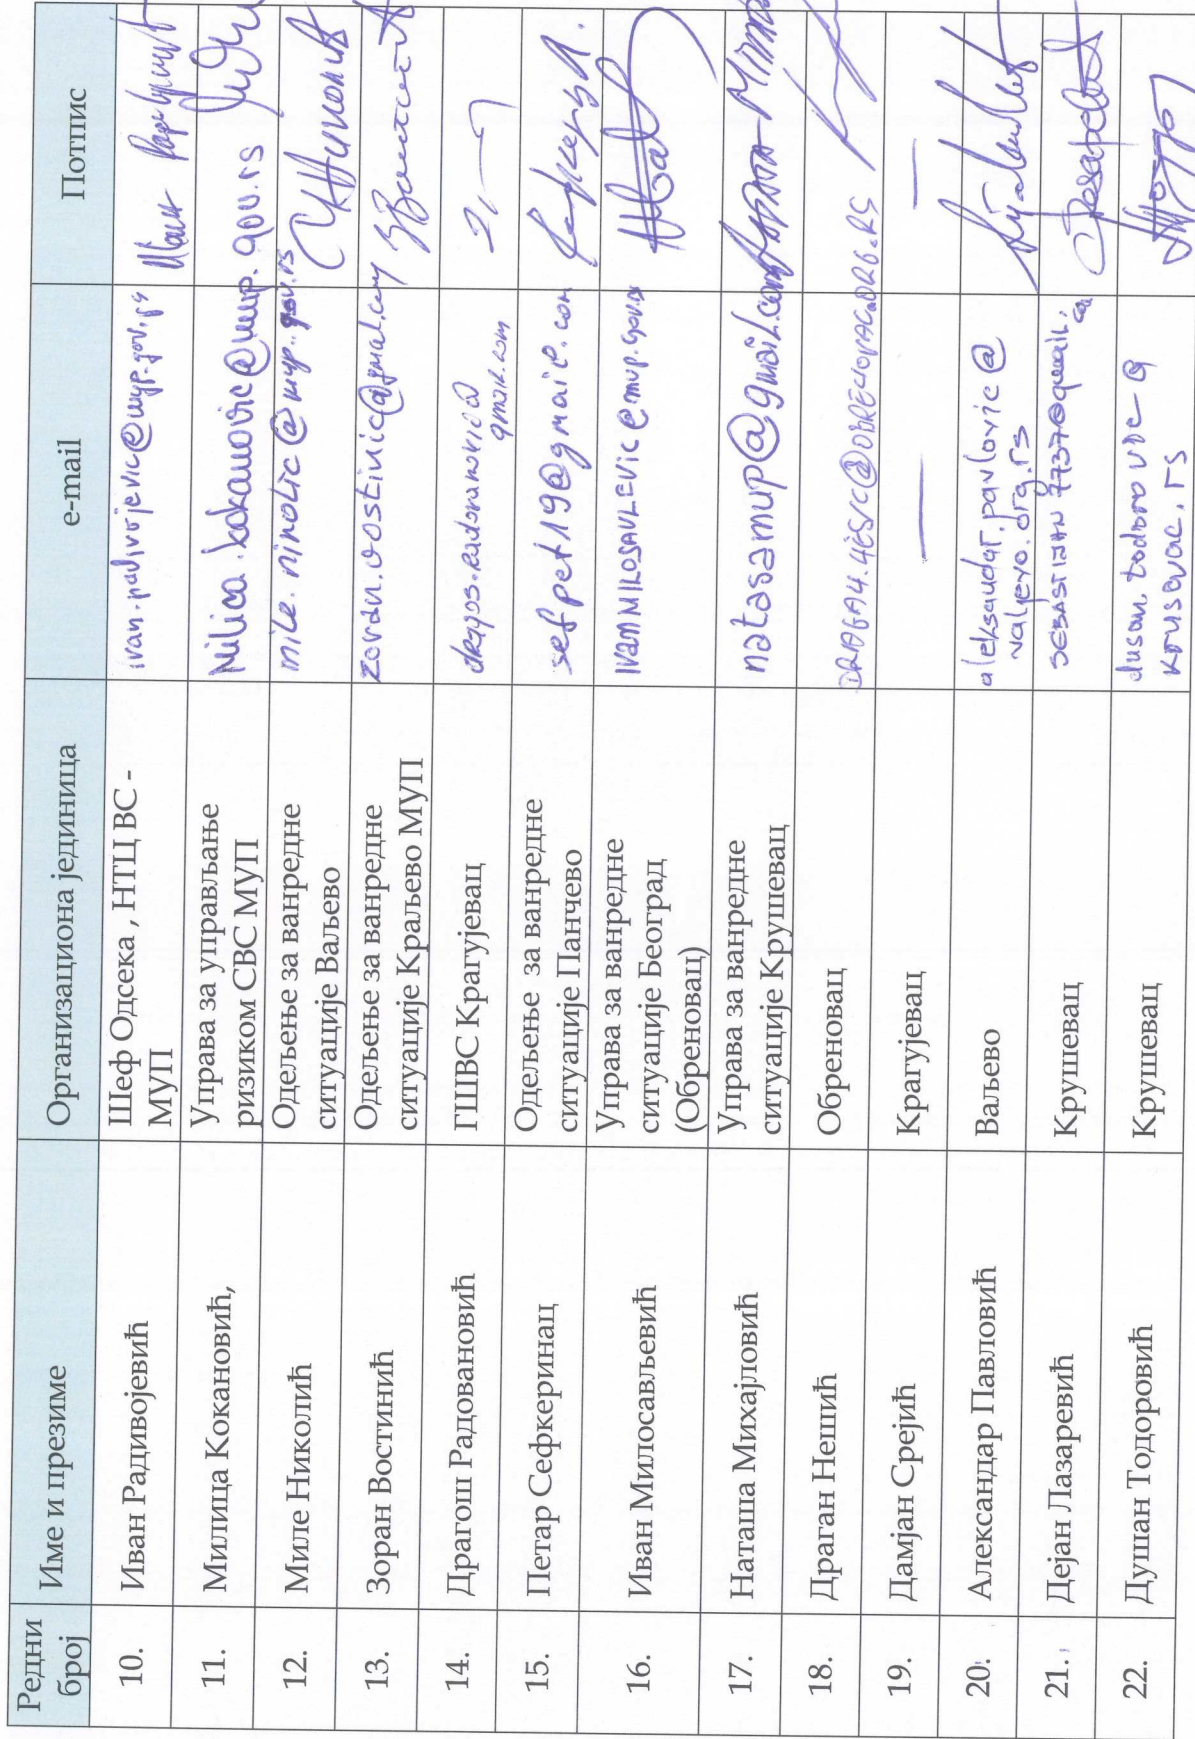 Редни број Име и презиме Организациона јединица e-mail Потпис
10. Иван Радивојевић Шеф Одсека , НТЦ ВС - МУП ivan.radivojevic@mup.gov.rs
11. Милица Кокановић, Управа за управљање ризиком СВС МУП Milica.kokanovic@mup.gov.rs
12. Миле Николић Одељење за ванредне ситуације Ваљево mile.nikolic@mup.gov.rs
13. Зоран Востинић Одељење за ванредне ситуације Краљево МУП zoran.vostinic@gmail.com
14. Драгош Радовановић ГШВС Крагујевац
15. Петар Сефкеринац Одељење за ванредне ситуације Панчево sefpet19@gmail.com
16. Иван Милосављевић Управа за ванредне ситуације Београд (Обреновац) IVAN MILOSAVLEVIC@mup.gov.rs
17. Наташа Михајловић Управа за ванредне ситуације Крушевац natasamup@gmail.com
18. Драган Нешић Обреновац
19. Дамјан Срејић Крагујевац — —
20. Александар Павловић Ваљево aleksandar.pavlovic@ valjevo.org.rs
21. Дејан Лазаревић Крушевац
22. Душан Тодоровић Крушевац dusan.todorovic@ krusevac.rs